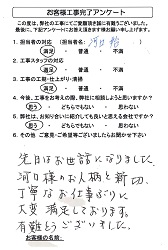 お客様工事完了アンケート
この度は、弊社の工事にてご愛顧頂き誠に有難うございました。
最後に、下記アンケートにお答え頂きます様お願い申し上げます。
1. 担当者の対応 (担当者名: 河口 様)
満足 ・ 普通 ・ 不満
2. 工事スタッフの対応
満足 ・ 普通 ・ 不満
3. 工事の工期・仕上がり・清掃
満足 ・ 普通 ・ 不満
4. 今後、工事をお考えの際、弊社に相談しようと思いますか?
思う ・ どちらでもない ・ 思わない
5. 弊社は、お知り合いに紹介しても良いと思える会社ですか?
思う ・ どちらでもない ・ 思わない
6. その他、ご意見・ご希望等ございましたらお聞かせ下さい
先日はお世話になりました。
河口様のお人柄と親切、
丁寧なお仕事ぶりに
大変満足しております。
有難うございました。
お客様のお名前: